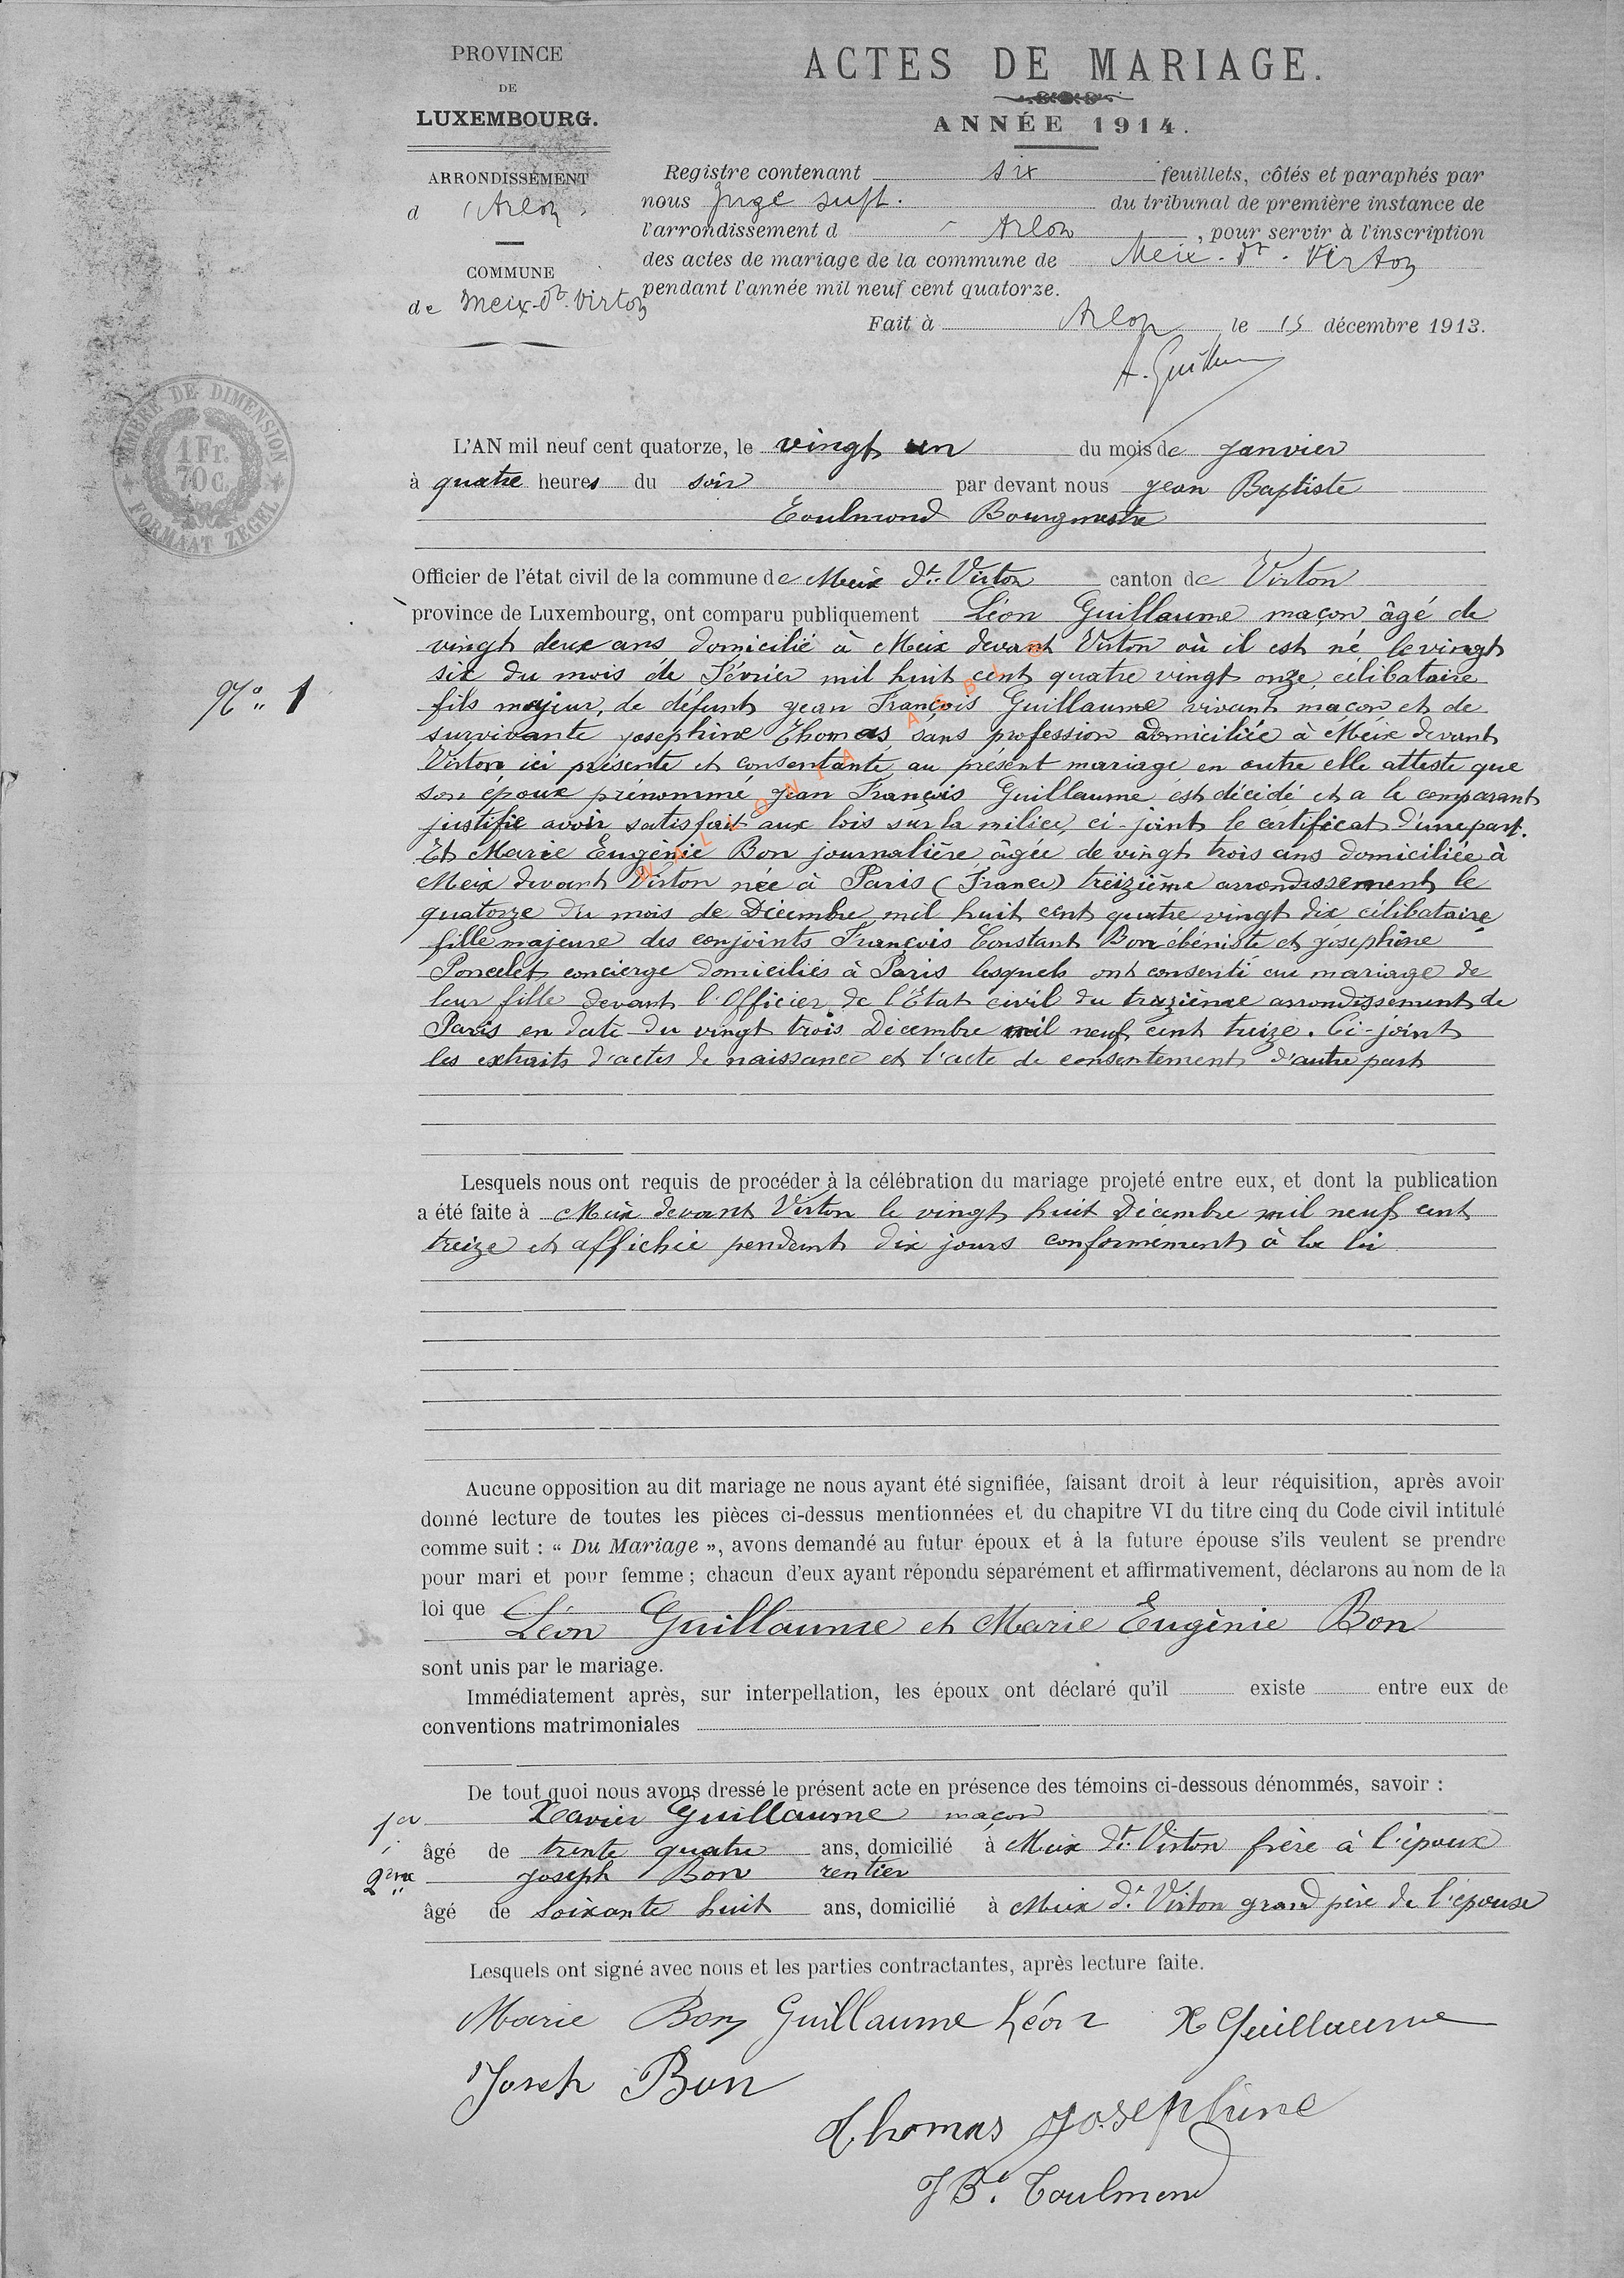 PROVINCE
DE
LUXEMBOURG.
ARRONDISSEMENT
d'Arlon
COMMUNE
de Meix-dt-Virton
ACTES DE MARIAGE.
ANNÉE 1914.
Registre contenant six feuillets, côtés et paraphés par
nous Juge supt. du tribunal de première instance de
l'arrondissement d'Arlon, pour servir à l'inscription
des actes de mariage de la commune de Meix-dt-Virton
pendant l'année mil neuf cent quatorze.
Fait à Arlon, le 15 décembre 1913.
TIMBRE DE DIMENSION
1 Fr.
70 C.
FORMAAT ZEGEL
L'AN mil neuf cent quatorze, le vingt un du mois de janvier
à quatre heures du soir par devant nous Jean Baptiste
Toulmond Bourgmestre
Officier de l'état civil de la commune de Meix dt. Virton canton de Virton
province de Luxembourg, ont comparu publiquement Léon Guillaume maçon âgé de
vingt deux ans domicilié à Meix devant Virton où il est né le vingt
six du mois de Février mil huit cent quatre vingt onze, célibataire
N° 1
fils majeur, de défunt Jean François Guillaume vivant maçon et de
survivante Josephine Thomas, sans profession domiciliée à Meix devant
Virton ici présente et consentante au présent mariage en outre elle atteste que
son époux prénommé Jean François Guillaume est décidé et a le comparant
justifié avoir satisfait aux lois sur la milice, ci-joint le certificat d'une part.
Et Marie Eugènie Bon journalière âgée de vingt trois ans domiciliée à
Meix devant Virton née à Paris (France) treizième arrondissement le
quatorze du mois de Décembre mil huit cent quatre vingt dix célibataire,
fille majeure des conjoints François Constant Bon ébéniste et Joséphine
Poncelet concierge domiciliés à Paris lesquels ont consenti au mariage de
leur fille devant l'Officier de l'Etat civil du treizième arrondissement de
Paris en date du vingt trois Décembre mil neuf cent treize. Ci-joint
les extraits d'actes de naissance et l'acte de consentement d'autre part
WALLONIA ASBL ©
Lesquels nous ont requis de procéder à la célébration du mariage projeté entre eux, et dont la publication
a été faite à Meix devant Virton le vingt huit Décembre mil neuf cent
treize et affichée pendant dix jours conformément à la loi
Aucune opposition au dit mariage ne nous ayant été signifiée, faisant droit à leur réquisition, après avoir
donné lecture de toutes les pièces ci-dessus mentionnées et du chapitre VI du titre cinq du Code civil intitulé
comme suit : « Du Mariage », avons demandé au futur époux et à la future épouse s'ils veulent se prendre
pour mari et pour femme ; chacun d'eux ayant répondu séparément et affirmativement, déclarons au nom de la
loi que
Léon Guillaume et Marie Eugènie Bon
sont unis par le mariage.
Immédiatement après, sur interpellation, les époux ont déclaré qu'il existe entre eux de
conventions matrimoniales
De tout quoi nous avons dressé le présent acte en présence des témoins ci-dessous dénommés, savoir :
1er Xavier Guillaume maçon
âgé de trente quatre ans, domicilié à Meix dt. Virton frère à l'époux
2ème Joseph Bon rentier
âgé de soixante huit ans, domicilié à Meix dt. Virton grand père de l'épouse
Lesquels ont signé avec nous et les parties contractantes, après lecture faite.
Marie Bon Guillaume Léon X Guillaume
Joseh Bon
Thomas Josephine
J Bte. Toulmond